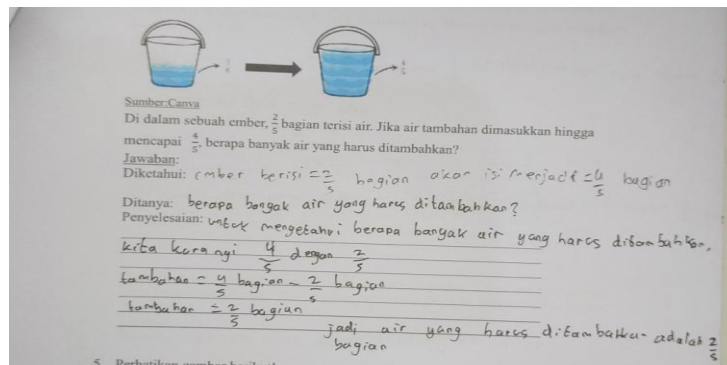 Sumber:Canva
Di dalam sebuah ember, 2/5 bagian terisi air. Jika air tambahan dimasukkan hingga
mencapai 4/5, berapa banyak air yang harus ditambahkan?
Jawaban:
Diketahui: ember berisi = 2/5 bagian akan isi menjadi = 4/5 bagian
Ditanya: berapa bangak air yang harus ditambahkan?
Penyelesaian: untuk mengetahui berapa banyak air yang harus ditambahkan,
kita kurangi 4/5 dengan 2/5
tambahan = 4/5 bagian - 2/5 bagian
tambahan = 2/5 bagian
jadi air yang harus ditambahkan adalah 2/5
bagian
5. Perhatikan gambar berikut